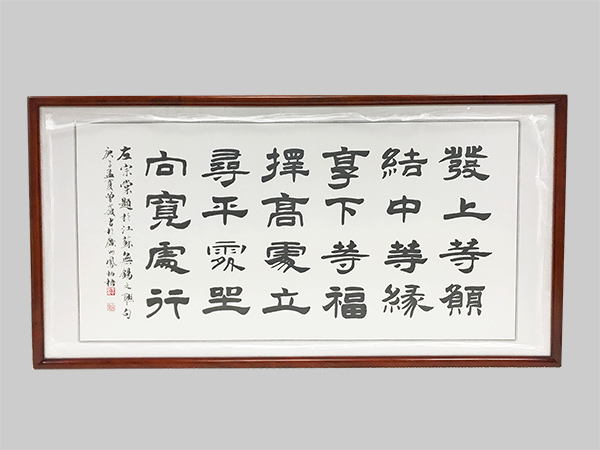 發上等願
結中等緣
享下等福
擇高處立
尋平眾坐
向寬處行
左宗棠題於江蘇無錫之聯句
庚子孟夏曾